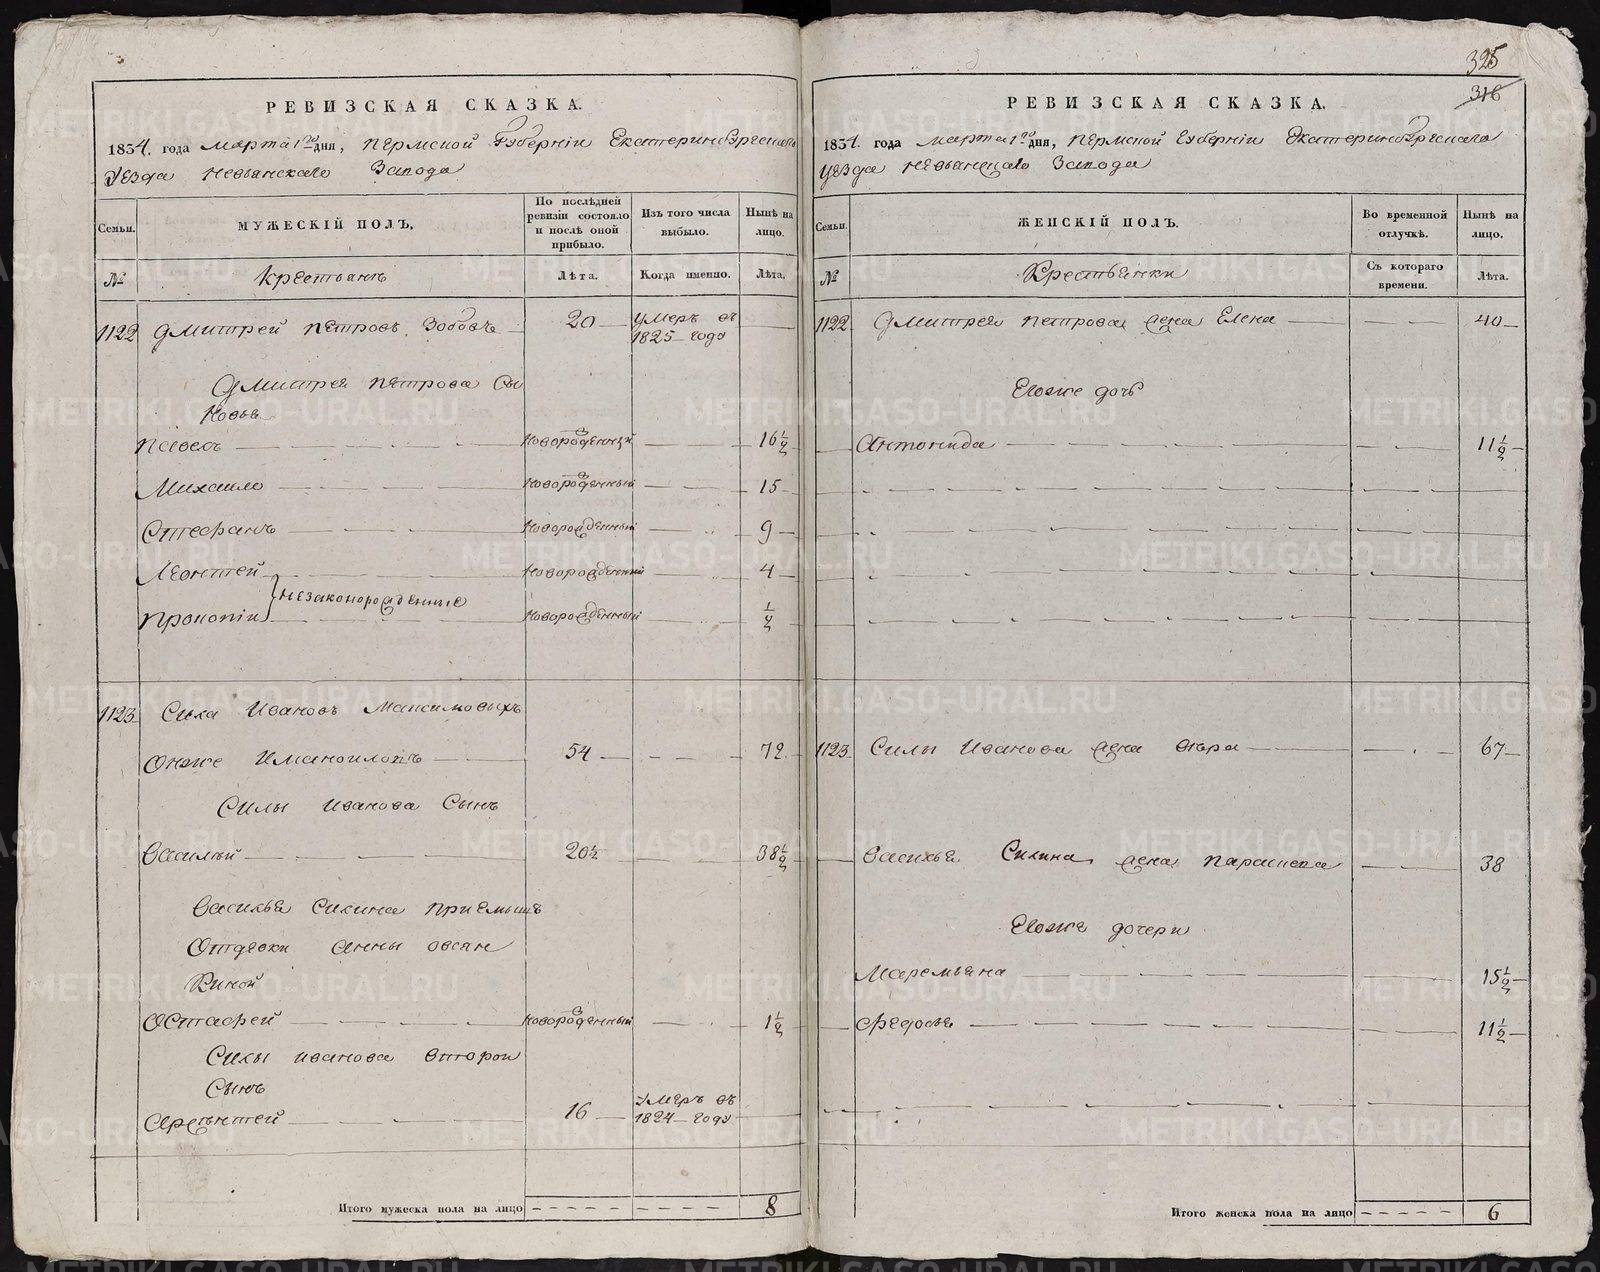 325
316
РЕВИЗСКАЯ СКАЗКА.
1834. года марта 1го дня, Пермской Губернiи Екатеринбургскаго
Уезда Невьянскаго Завода
Семьи.
МУЖЕСКIЙ ПОЛЪ.
По послѣдней ревизiи состояло и послѣ оной прибыло.
Изъ того числа выбыло.
Нынѣ на лицо.
№
Крестьянъ
Лѣта.
Когда именно.
Лѣта.
1122 Дмитрей Петровъ Зобовъ 20 умеръ въ 1825 году
Дмитрея Петрова сы
новья
Павелъ новорожденный 16½
Михаило новорожденный 15
Стефанъ новорожденный 9
Леонтей новорожденный 4
незаконорожденные
Прокопiи новорожденный ½
1123 Сила Ивановъ Максимовыхъ
Онже Имановъ 54 72
Силы Иванова Сынъ
Василiй 20½ 38½
Василья Силина приемышъ
Отдевки Анны Овсян
киной
Остафей новорожденный 1½
Силы Иванова второй
Сынъ
16 умеръ въ 1824 году
Итого мужеска пола на лицо 8
РЕВИЗСКАЯ СКАЗКА.
1834. года марта 1го дня, Пермской Губернiи Екатеринбургскаго
уезда Невьянскаго Завода
Семьи.
ЖЕНСКIЙ ПОЛЪ.
Во временной отлучкѣ.
Нынѣ на лицо.
№
Крестьянки
Съ котораго времени.
Лѣта.
1122 Дмитрея Петрова жена Елена 40
Еяже дочь
Антонида 11½
1123 Силы Иванова жена вѣра 67
Василья Силина жена Парасковa 38
Еяже дочери
Маремьяна 15½
Федосья 11½
Итого женска пола на лицо 6